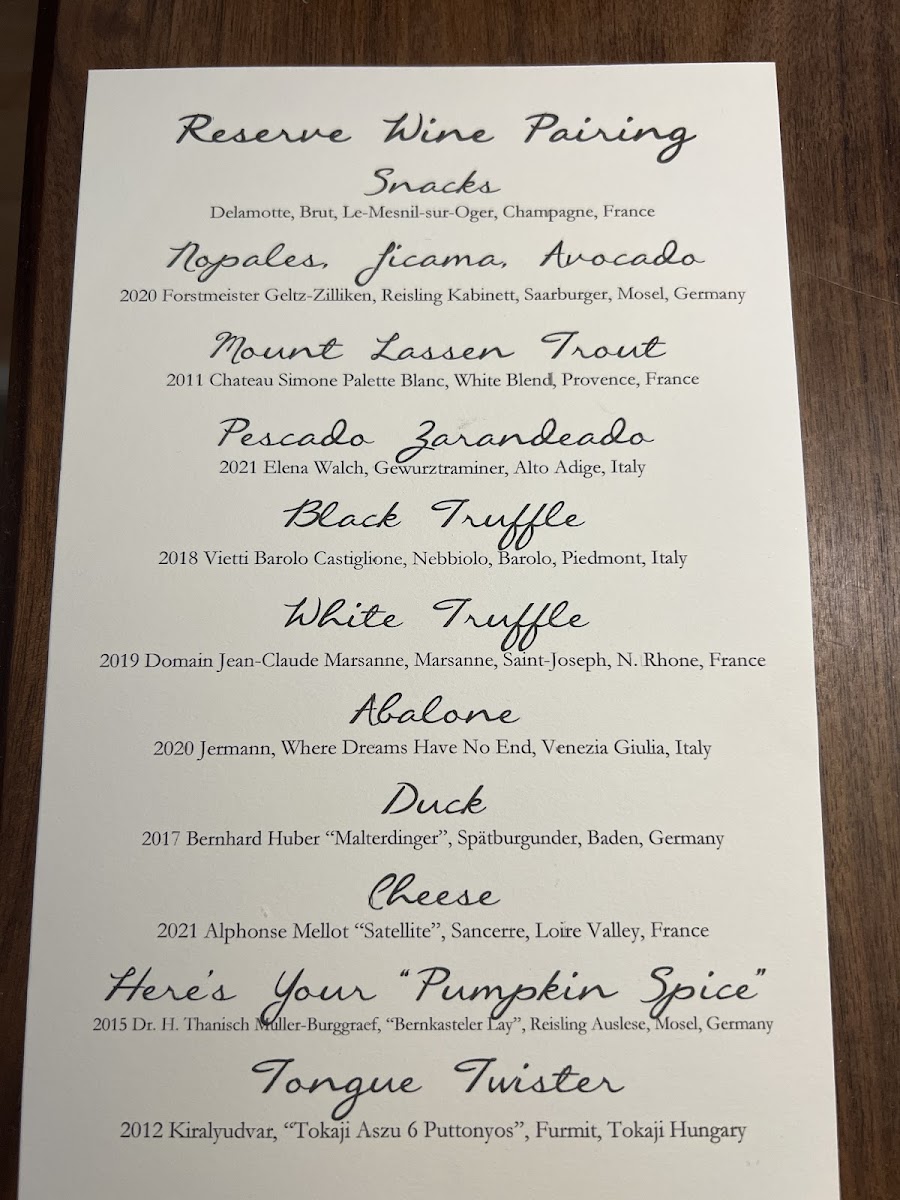 Reserve Wine Pairing
Snacks
Delamotte, Brut, Le-Mesnil-sur-Oger, Champagne, France
Nopales, Jicama, Avocado
2020 Forstmeister Geltz-Zilliken, Reisling Kabinett, Saarburger, Mosel, Germany
Mount Lassen Trout
2011 Chateau Simone Palette Blanc, White Blend, Provence, France
Pescado Zarandeado
2021 Elena Walch, Gewurztraminer, Alto Adige, Italy
Black Truffle
2018 Vietti Barolo Castiglione, Nebbiolo, Barolo, Piedmont, Italy
White Truffle
2019 Domain Jean-Claude Marsanne, Marsanne, Saint-Joseph, N. Rhone, France
Abalone
2020 Jermann, Where Dreams Have No End, Venezia Giulia, Italy
Duck
2017 Bernhard Huber “Malterdinger”, Spätburgunder, Baden, Germany
Cheese
2021 Alphonse Mellot “Satellite”, Sancerre, Loire Valley, France
Here's Your "Pumpkin Spice"
2015 Dr. H. Thanisch Müller-Burggraef, “Bernkasteler Lay”, Reisling Auslese, Mosel, Germany
Tongue Twister
2012 Kiralyudvar, “Tokaji Aszu 6 Puttonyos”, Furmit, Tokaji Hungary